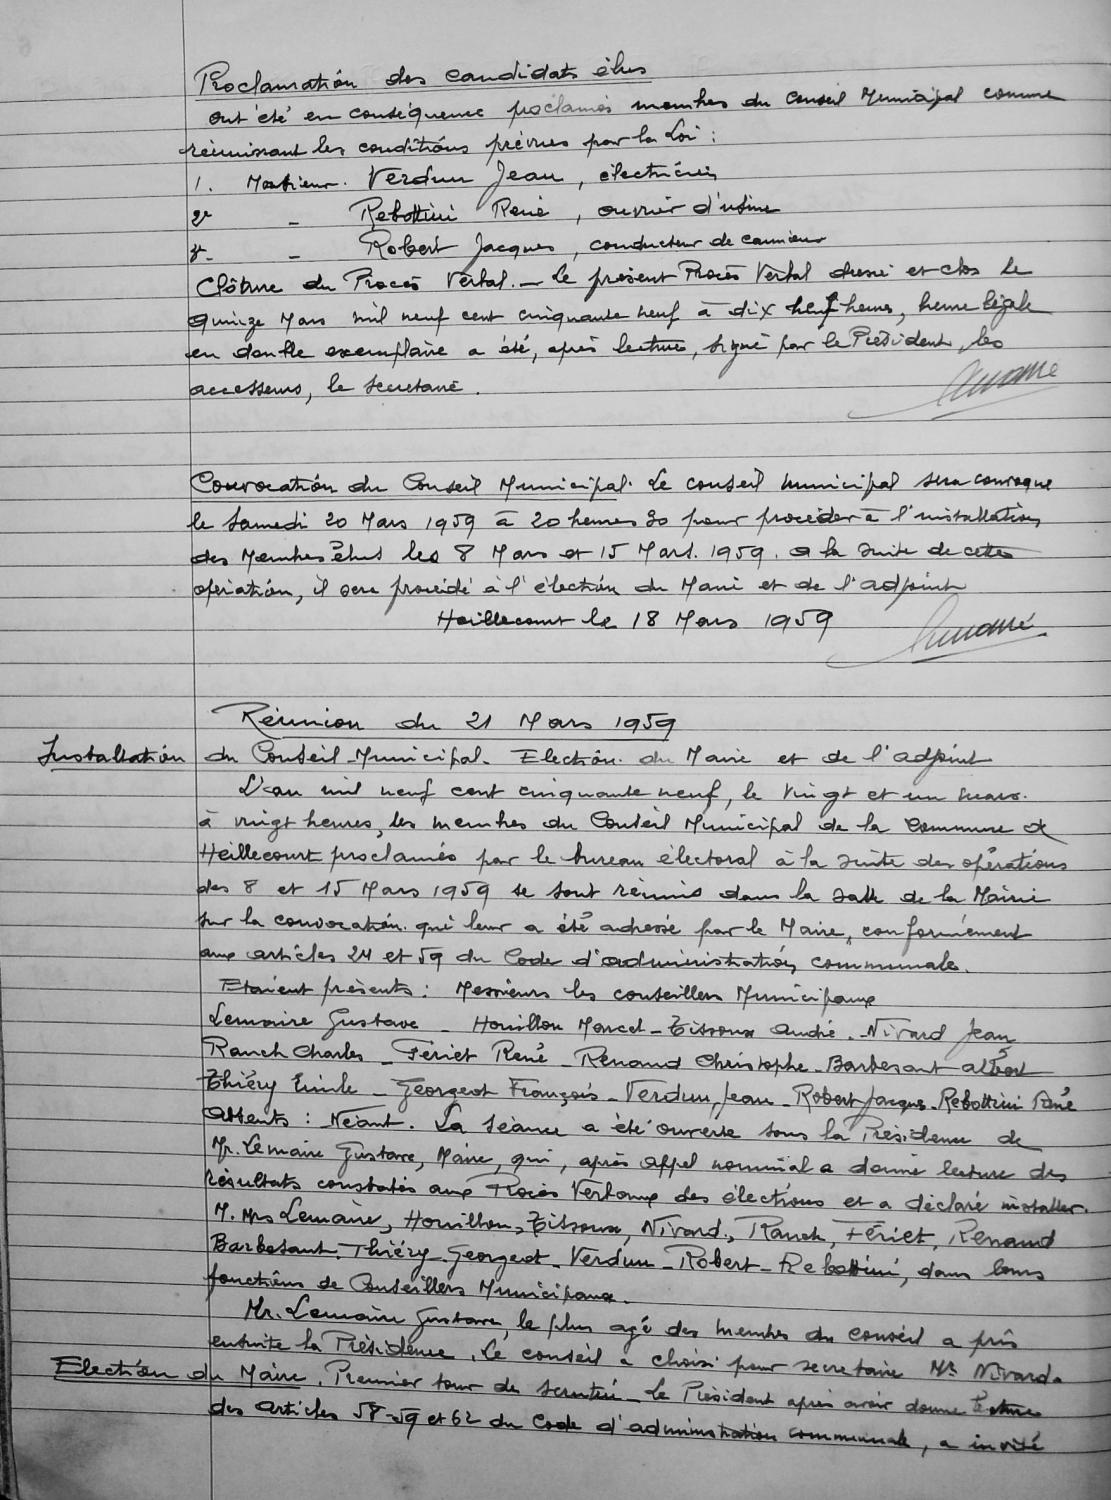 Proclamation des candidats élus
ont été en conséquence proclamés membres du Conseil Municipal comme
réunissant les conditions prévues par la Loi :
1. Monsieur. Verdun Jean, électricien
2e - Rebottini René, ouvrier d'usine
3e - Robert Jacques, conducteur de camions
Clôture du Procès Verbal. - Le présent Procès Verbal dressé et clos le
quinze Mars mil neuf cent cinquante neuf à dix heures, heure légale
en double exemplaire a été, après lecture, signé par le Président, les
accesseurs, le secrétaire.
Convocation du Conseil Municipal. Le conseil municipal sera convoqué
le Samedi 20 Mars 1959 à 20 heures 30 pour procéder à l'installation
des Membres élus les 8 Mars et 15 Mars. 1959. a la suite de cette
opération, il sera procédé à l'élection du Maire et de l'adjoint
Heillecourt le 18 Mars 1959
Réunion du 21 Mars 1959
Installation du Conseil Municipal. Election du Maire et de l'adjoint
L'an mil neuf cent cinquante neuf, le vingt et un mars.
à vingt heures, les membres du Conseil Municipal de la Commune de
Heillecourt proclamés par le bureau électoral à la suite des opérations
des 8 et 15 Mars 1959 se sont réunis dans la salle de la Mairie
sur la convocation qui leur a été adressé par le Maire, conformément
aux articles 24 et 59 du Code d'administration communale.
Etaient présents : Messieurs les conseillers Municipaux
Lemaire Gustave - Houillon Marcel - Tissoux André - Nivard Jean
Ranch Charles - Fériet René - Renaud Christophe - Barbesant albert
Thiéry Emile - Georgeot François - Verdun Jean - Robert Jacques - Rebottini René
Absents : Néant. La séance a été ouverte sous la Présidence de
Mr. Lemaire Gustave, Maire, qui, après appel nominal a donné lecture des
résultats constatés aux Procès Verbaux des élections et a déclaré installer
M. Mrs Lemaire, Houillon, Tissoux, Nivard, Ranch, Fériet, Renaud
Barbesant, Thiéry - Georgeot - Verdun - Robert - Rebottini, dans leurs
fonctions de Conseillers Municipaux.
Mr. Lemaire Gustave, le plus agé des membres du conseil a pris
ensuite la Présidence. Le conseil a choisi pour secrétaire Mr Nivard.
Election du Maire. Premier tour de scrutin - Le Président après avoir donné lecture
des articles 58-59 et 62 du Code d'administration communale, a invité